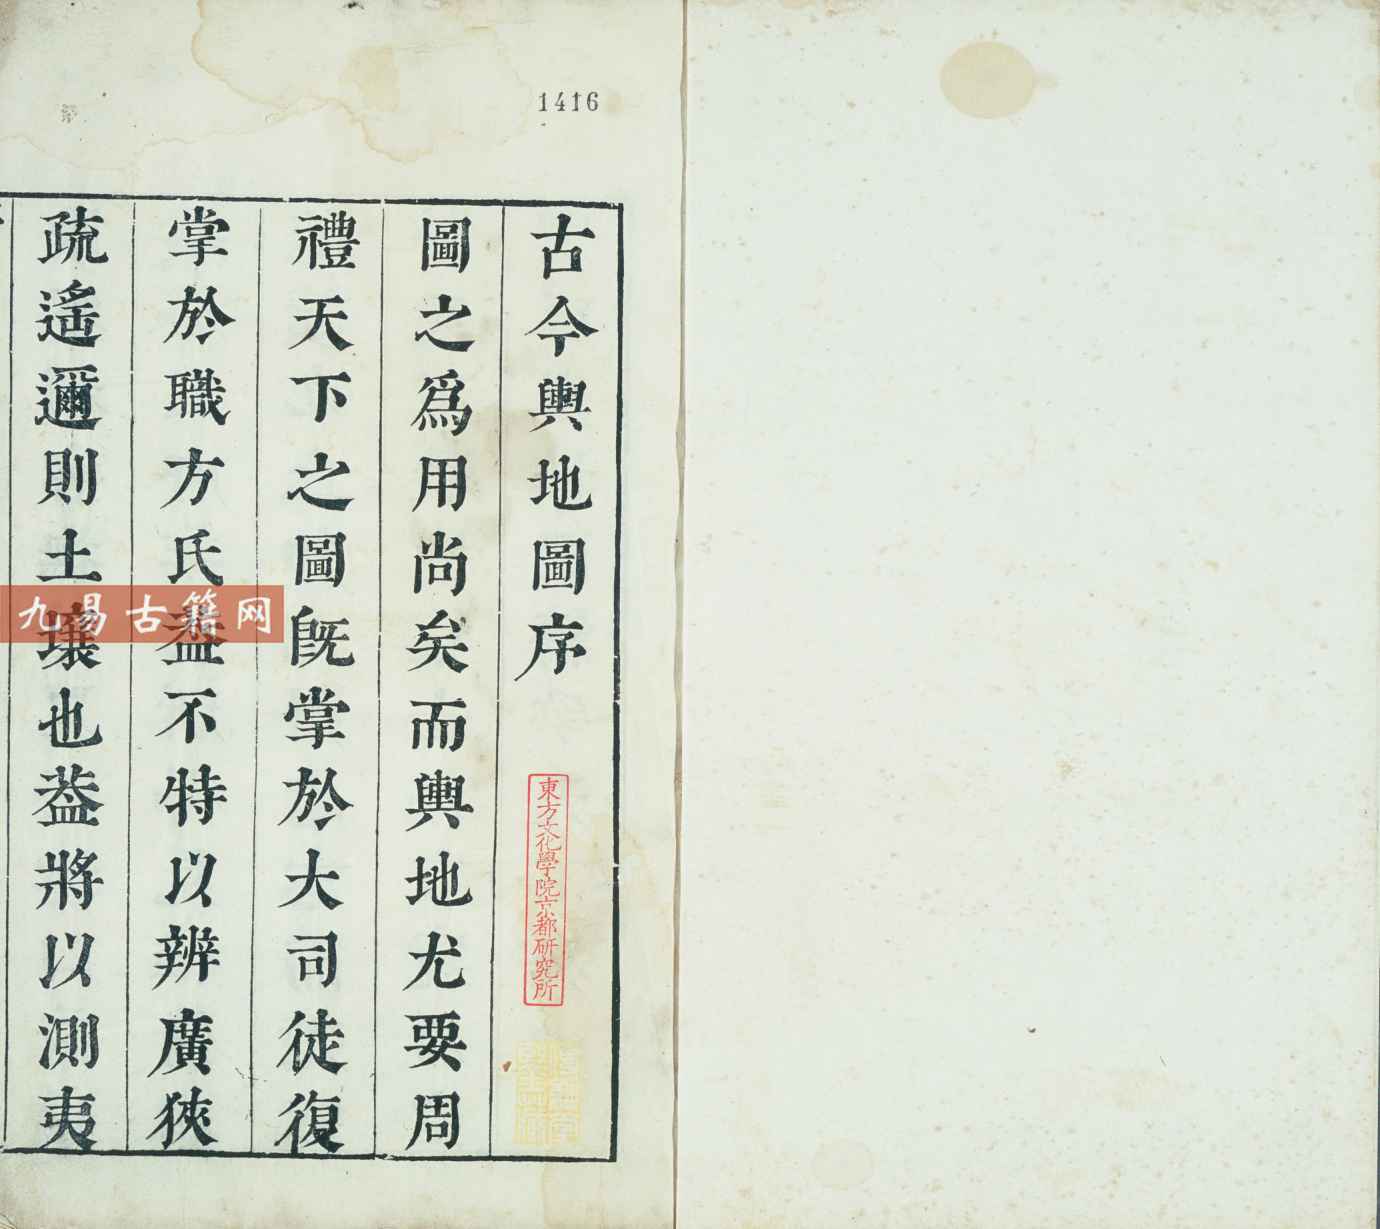 1416
古今輿地圖序
圖之爲用尚矣而輿地尤要周
禮天下之圖既掌於大司徒復
掌於職方氏葢不特以辨廣狹
疏遙邇則土壤也葢將以測夷
東方文化學院京都研究所
九易古籍网